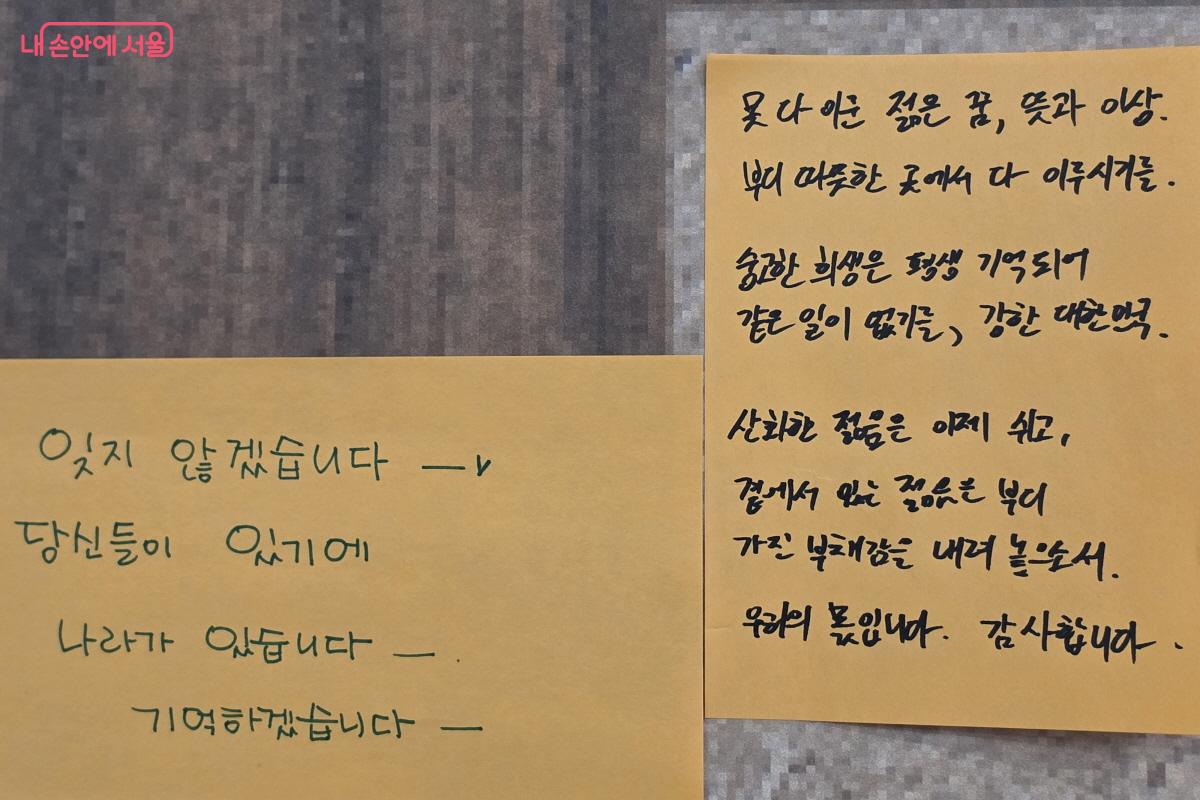 내 손안에 서울
못다 이룬 젊은 꿈, 뜻과 이상.
부디 따뜻한 곳에서 다 이루시기를.
숭고한 희생은 평생 기억되어
같은 일이 없기를, 강한 대한민국.
산화한 젊음은 이제 쉬고,
곁에서 있는 젊음은 부디
가진 부채감을 내려 놓으소서.
우리의 몫입니다. 감사합니다.
잊지 않겠습니다 —
당신들이 있기에
나라가 있습니다 — .
기억하겠습니다 —